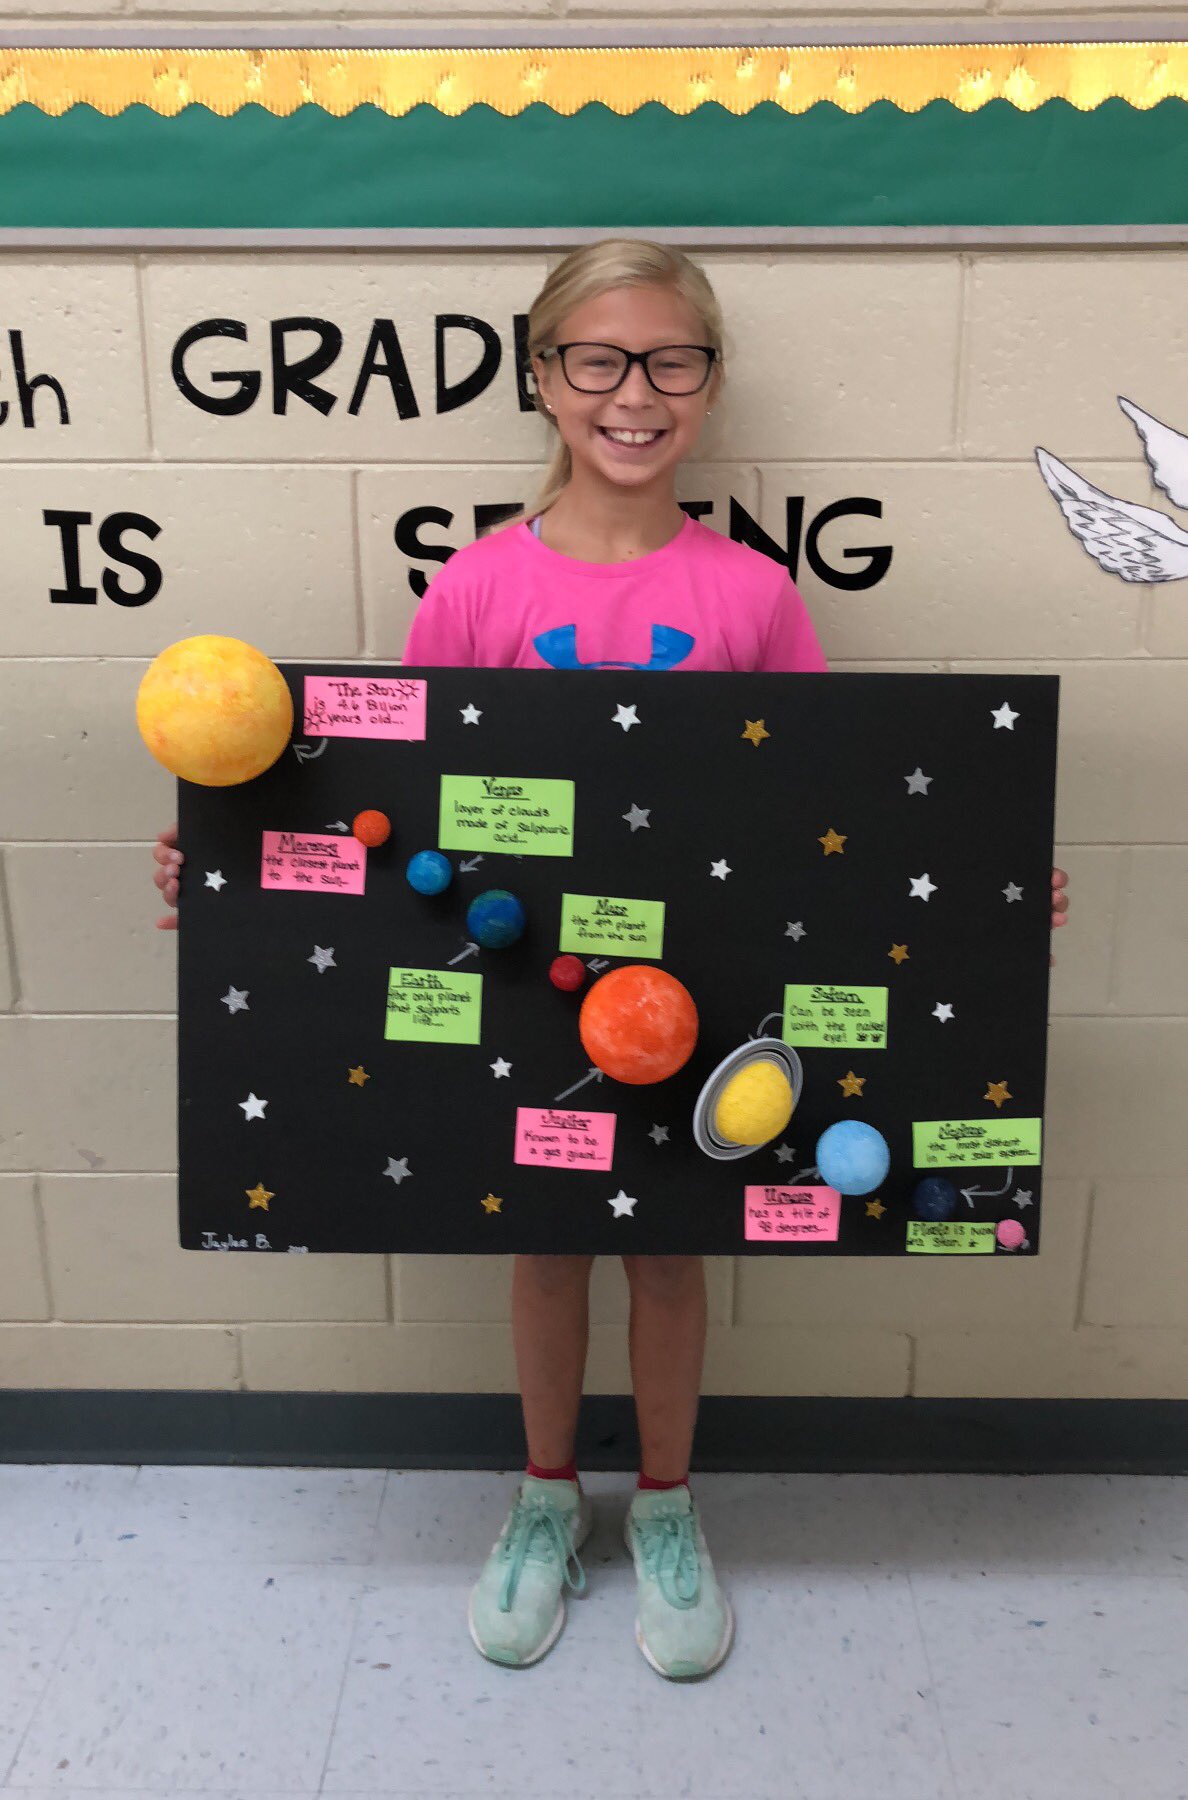 th GRADE
IS S ING
The Sun
is 4.6 Billion
years old...
Venus
layer of clouds
made of Sulphuric
acid...
Mercury
the closest planet
to the sun...
Mars
the 4th planet
from the sun
Earth
the only planet
that supports
life...
Saturn
Can be seen
with the naked
eye!
Jupiter
Known to be
a gas giant...
Neptune
the most distant
in the solar system...
Uranus
has a tilt of
98 degrees...
Pluto is Now
a Star.
Jaylee B. 2018